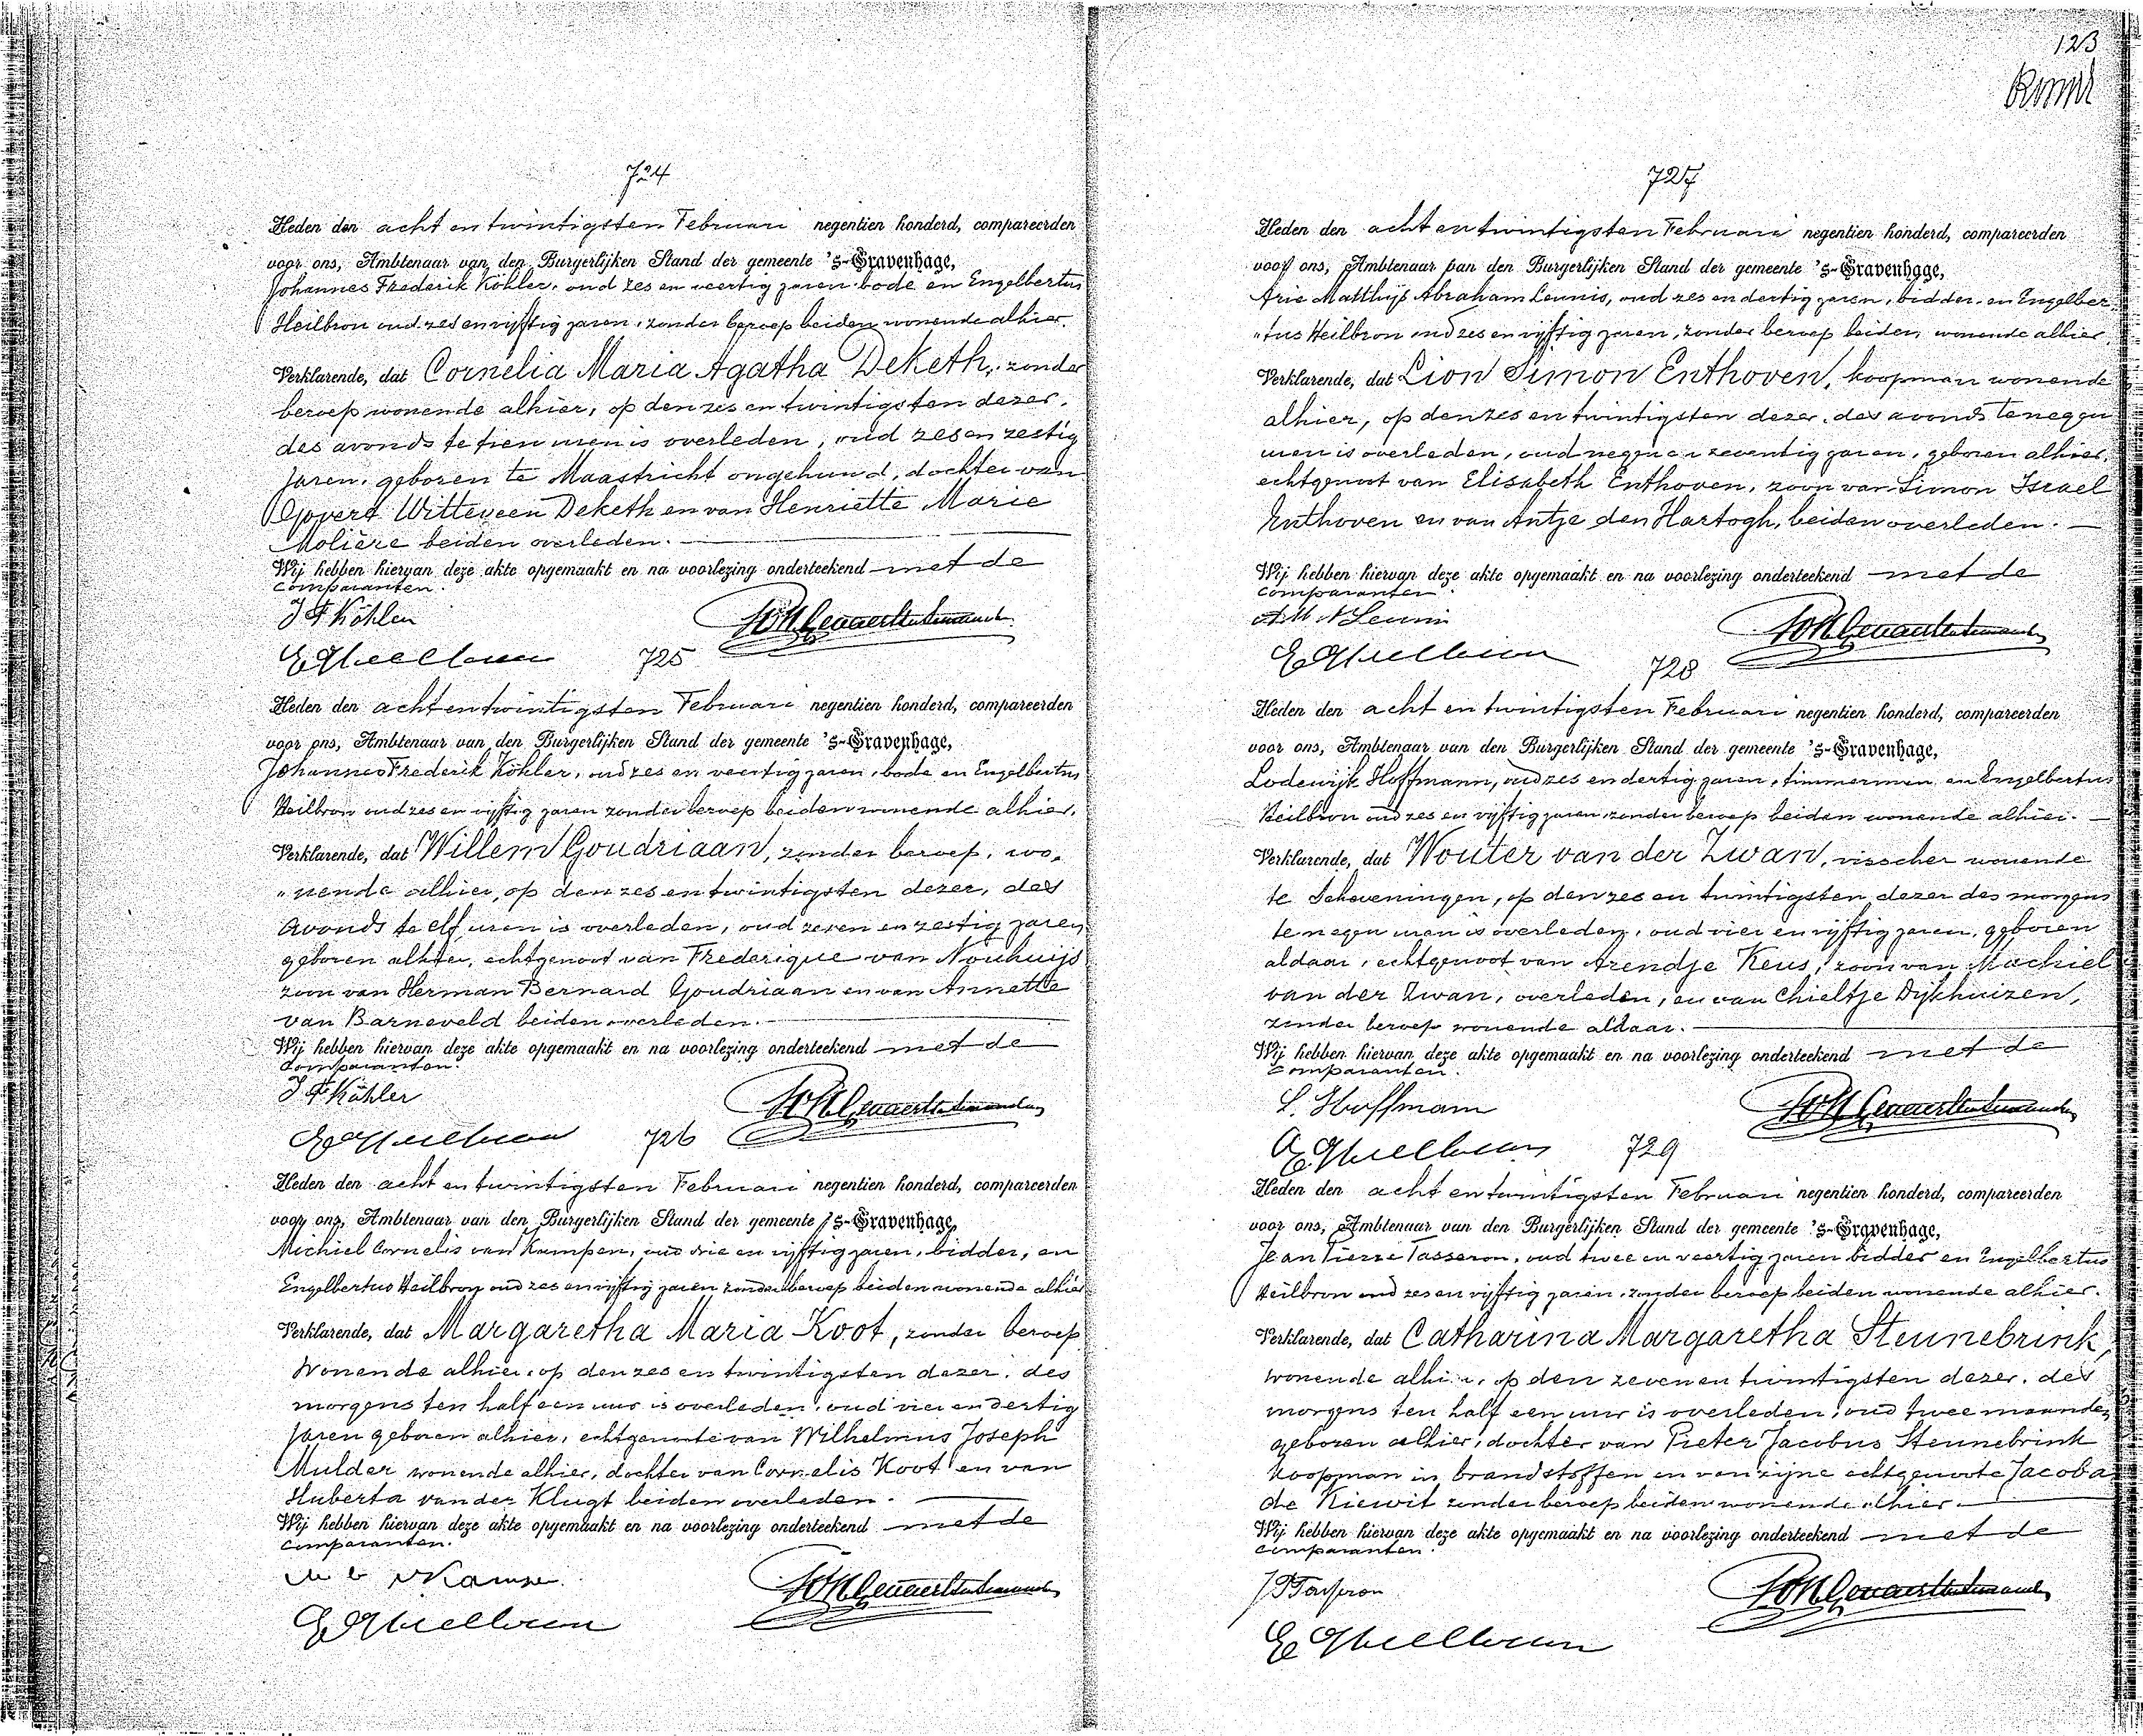 724
Heden den acht en twintigsten Februari negentien honderd, compareerden
voor ons, Ambtenaar van den Burgerlijken Stand der gemeente 's-Gravenhage,
Johannes Frederik Köhler, oud zes en veertig jaren bode en Engelbertus
Heilbron oud zes en vijftig jaren, zonder beroep beiden wonende alhier.
Verklarende, dat Cornelia Maria Agatha Deketh, zonder
beroep wonende alhier, op den zes en twintigsten dezer,
des avonds te tien uren is overleden, oud zes en zestig
Jaren, geboren te Maastricht ongehuwd, dochter van
Govert Witteveen Deketh en van Henriette Marie
Molière beiden overleden.
Wij hebben hiervan deze akte opgemaakt en na voorlezing onderteekend met de
comparanten.
J F Köhler
E Heilbron
725
Heden den acht en twintigsten Februari negentien honderd, compareerden
voor ons, Ambtenaar van den Burgerlijken Stand der gemeente 's-Gravenhage,
Johannes Frederik Köhler, oud zes en veertig jaren, bode en Engelbertus
Heilbron oud zes en vijftig jaren zonder beroep beiden wonende alhier.
Verklarende, dat Willem Goudriaan, zonder beroep, wo-
"nende alhier, op den zes en twintigsten dezer, des
Avonds te elf uren is overleden, oud zeven en zestig jaren
geboren alhier, echtgenoot van Frederique van Nouhuijs
zoon van Herman Bernard Goudriaan en van Annette
van Barneveld beiden overleden.
Wij hebben hiervan deze akte opgemaakt en na voorlezing onderteekend met de
Comparanten.
J F Köhler
E Heilbron
726
Heden den acht en twintigsten Februari negentien honderd, compareerden
voor ons, Ambtenaar van den Burgerlijken Stand der gemeente 's-Gravenhage,
Michiel Cornelis van Kampen, oud drie en vijftig jaren, bidder, en
Engelbertus Heilbron oud zes en vijftig jaren zonder beroep beiden wonende alhier
Verklarende, dat Margaretha Maria Koot, zonder beroep
Wonende alhier, op den zes en twintigsten dezer, des
morgens ten half een uur is overleden, oud vier en dertig
Jaren geboren alhier, echtgenoote van Wilhelmus Joseph
Mulder wonende alhier, dochter van Cornelis Koot en van
Huberta van der Klugt beiden overleden.
Wij hebben hiervan deze akte opgemaakt en na voorlezing onderteekend met de
comparanten.
M C v Kampen
E Heilbron
123
727
Heden den acht en twintigsten Februari negentien honderd, compareerden
voor ons, Ambtenaar van den Burgerlijken Stand der gemeente 's-Gravenhage,
Arie Matthijs Abraham Leunis, oud zes en dertig jaren, bidder, en Engelber-
"tus Heilbron oud zes en vijftig jaren, zonder beroep beiden wonende alhier.
Verklarende, dat Lion Simon Enthoven, koopman wonende
alhier, op den zes en twintigsten dezer, des avonds te negen
uren is overleden, oud negen en zeventig jaren, geboren alhier,
echtgenoot van Elisabeth Enthoven, zoon van Simon Israel
Enthoven en van Antje den Hartogh, beiden overleden.
Wij hebben hiervan deze akte opgemaakt en na voorlezing onderteekend met de
comparanten.
A M A Leunis
E Heilbron
728
Heden den acht en twintigsten Februari negentien honderd, compareerden
voor ons, Ambtenaar van den Burgerlijken Stand der gemeente 's-Gravenhage,
Lodewijk Hoffmann, oud zes en dertig jaren, timmerman, en Engelbertus
Heilbron oud zes en vijftig jaren, zonder beroep beiden wonende alhier.
Verklarende, dat Wouter van der Zwan, visscher wonende
te Scheveningen, op den zes en twintigsten dezer des morgens
te negen uren is overleden, oud vier en vijftig jaren, geboren
aldaar, echtgenoot van Arendje Keus, zoon van Machiel
van der Zwan, overleden, en van Chieltje Dijkhuizen,
zonder beroep wonende aldaar.
Wij hebben hiervan deze akte opgemaakt en na voorlezing onderteekend met de
comparanten.
L. Hoffmann
E Heilbron
729
Heden den acht en twintigsten Februari negentien honderd, compareerden
voor ons, Ambtenaar van den Burgerlijken Stand der gemeente 's-Gravenhage,
Jean Pierre Tasseron, oud twee en veertig jaren bidder en Engelbertus
Heilbron oud zes en vijftig jaren, zonder beroep beiden wonende alhier.
Verklarende, dat Catharina Margaretha Stennebrink,
wonende alhier, op den zeven en twintigsten dezer, des
morgens ten half een uur is overleden, oud twee maanden
geboren alhier, dochter van Pieter Jacobus Stennebrink
koopman in brandstoffen en van zijne echtgenoote Jacoba
de Kiewit zonder beroep beiden wonende alhier.
Wij hebben hiervan deze akte opgemaakt en na voorlezing onderteekend met de
comparanten.
J P Tasseron
E Heilbron